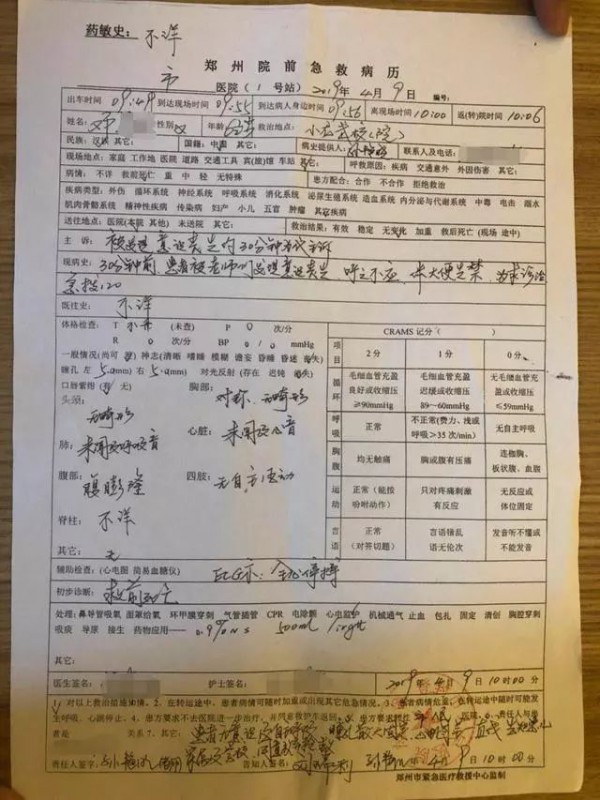 药敏史: 不详
市
郑州院前急救病历
医院( 1 号站) 2019年4月9日 编号:
出车时间 09:49 到达现场时间 09:55 到达病人身边时间 09:56 离现场时间 10:00 返(转)院时间 10:06
姓名: 性别 女 年龄 救治地点: 小龙武校(院)
民族: 汉 其它: 国籍: 中国 其它: 病史提供人: 联系人及电话:
现场地点: 家庭 工作地 医院 道路 交通工具 宾(旅)馆 车站 其它: 呼救原因: 疾病 交通意外 外因伤害 其它:
病情: 不详 救前死亡 重 中 轻 无特殊 患方配合: 合作 不合作 拒绝救治
疾病类型: 外伤 循环系统 神经系统 呼吸系统 消化系统 泌尿生殖系统 造血系统 内分泌与代谢系统 中毒 电击 溺水
肌肉骨骼系统 精神性疾病 传染病 妇产 小儿 五官 肿瘤 其它疾病
送往地点: 医院(本院 其他) 未送院 其它: 救治结果: 有效 稳定 无变化 加重 救后死亡(现场 途中)
主 诉: 被发现意识丧失约30分钟
现病史: 30分钟前,患者被老师们发现意识丧失 呼之不应,伴大便失禁 为求诊治
急拨120
既往史: 不详
体格检查: T (未查) P 0 次/分
R 0 次/分 BP 0/0 mmHg
一般情况(尚可 差) 神志(清晰 嗜睡 模糊 谵妄 昏睡 昏迷 丧失)
瞳孔 左 5.0mm) 右 5.0mm) 对光反射(存在 迟钝 消失)
口唇紫绀(有 无) 胸部: 对称、无畸形
头颈: 无畸形
肺: 未闻及呼吸音 心脏: 未闻及心音
腹部: 腹膨隆 四肢: 无自主活动
脊柱: 不详
其它: 无
CRAMS记分( )
项目 2分 1分 0分
循环 毛细血管充盈良好或收缩压≥90mmHg 毛细血管充盈迟缓或收缩压89~60mmHg 无毛细血管充盈或收缩压≤59mmHg
呼吸 正常 不正常(费力、浅或呼吸>35次/min) 无自主呼吸
胸腹 均无触痛 胸或腹有压痛 连枷胸、板状腹、血腹
运动 正常(能按吩咐动作) 只对疼痛刺激有反应 无反应或体位固定
言语 正常(对答切题) 言语错乱语无伦次 发音听不懂或不能发音
辅助检查: (心电图 简易血糖仪) ECG示: 全心停搏
初步诊断: 救前死亡
处理: 鼻导管吸氧 面罩给氧 环甲膜穿刺 气管插管 CPR 电除颤 心电监护 机械通气 止血 包扎 固定 清创 胸腔穿刺
吸痰 导尿 接生 药物应用—— 0.9% NS 500ml
其它:
医生签名: 护士签名: 2019年4月9日10时00分
1、对以上救治措施知情。2、在转运途中,患者病情可随时加重或出现其它危急情况。3、患者病情危重,在转运途中随时可能发
生呼吸、心跳停止。4、患方要求不去医院进一步治疗,并同意救护车返回。5、患方要求转
关系 7、其它:
责任人签字: 告知人签名: 年4月9日10时00分
郑州市紧急医疗救援中心监制